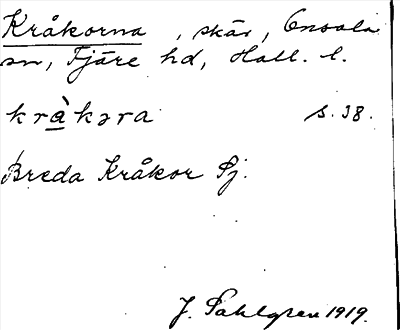 Kråkorna , skär, Onsala
sn, Fjäre hd, Hall. l.
kràkəra s. 38.
Breda Kråkor Sj.
J. Sahlgren 1919.